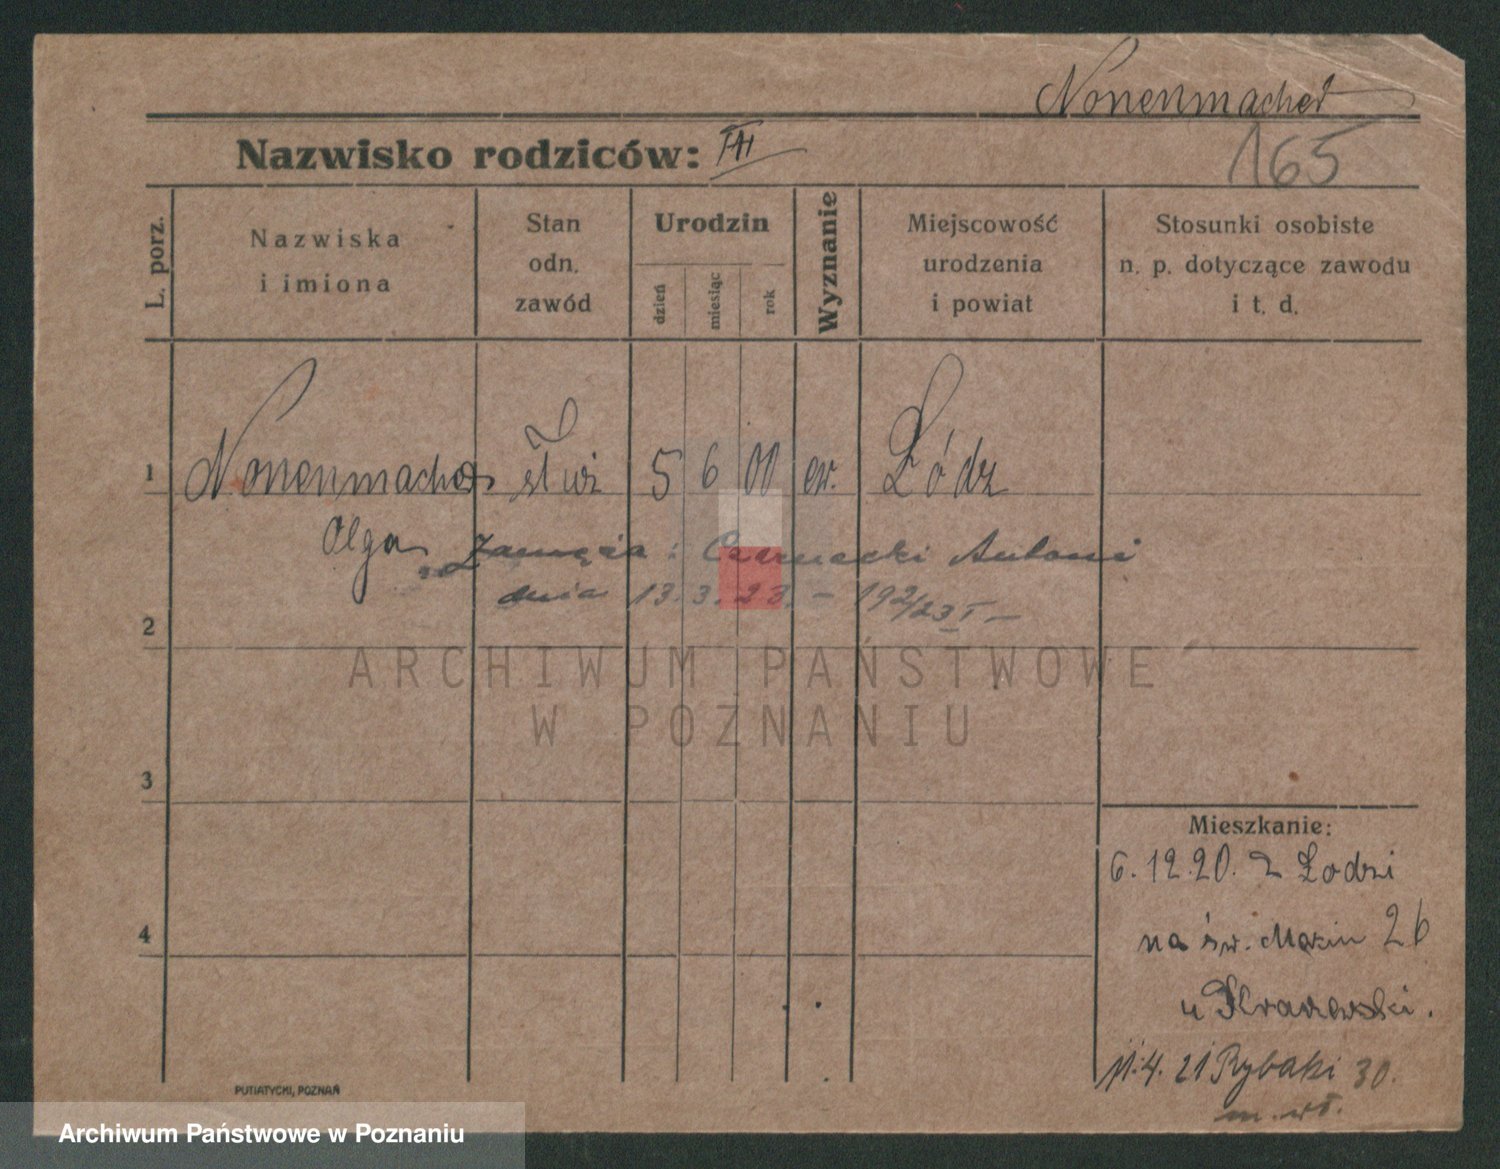 Nonenmacher
Nazwisko rodziców:
165
L. porz.
Nazwiska
i imiona
Stan
odn.
zawód
Urodzin
dzień
miesiąc
rok
Wyznanie
Miejscowość
urodzenia
i powiat
Stosunki osobiste
n. p. dotyczące zawodu
i t. d.
1 Nonenmacher służ 5 6 00 ew. Łódz
Olga Zamęźa: Czarnecki Antoni
dnia 13. 3. 23. – 192/23 I –
2
ARCHIWUM PAŃSTWOWE
W POZNANIU
3
4
Mieszkanie:
6.12.20. z Łodzi
na św. Marcin 26
u
11.4.21 Rybaki 30.
PUTIATYCKI, POZNAŃ
Archiwum Państwowe w Poznaniu